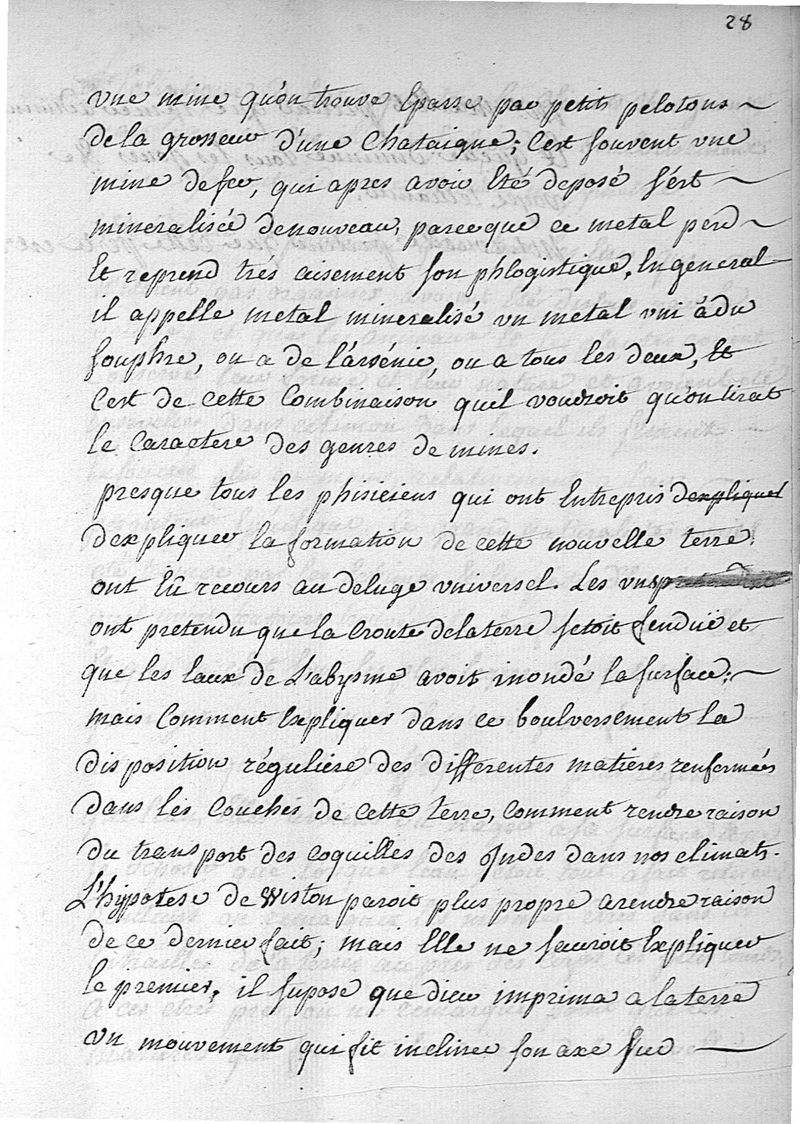 28
vne mine qu'on trouve Eparse par petits pelotons
de la grosseur d'une Chataigne; C'est souvent vne
mine de fer, qui apres avoir Eté deposé s'ést
mineralisée de nouveau, parce que ce metal perd
Et reprend trés aisement son phlogistique, En general
il appelle metal mineralisé vn metal vni à du
souphre, ou a de l'arsénic, ou a tous les deux, Et
C'est de cette Combinaison quel voudroit qu'on tirat
le Caractere des genres de mines.
presque tous les phisiciens qui ont Entrepris dexpliquer
dexpliquer la formation de cette nouvelle terre,
ont Eû recours au deluge vniversel. Les vns
ont pretendu que la Croute de la terre s'etoit fenduë et
que les Eaux de L'abysme avoit inondé la surface;
mais Comment Expliquer dans ce boulversement la
disposition réguliére des differentes matiéres renfermées
dans les Couches de Cette terre, Comment rendre raison
du transport des Coquilles des Indes dans nos climats.
L'hypotese de Wiston paroit plus propre a rendre raison
de ce dernier fait; mais Elle ne sauroit Expliquer
le premier, il supose que dieu imprima a la terre
vn mouvement qui fit incliner son axe sur